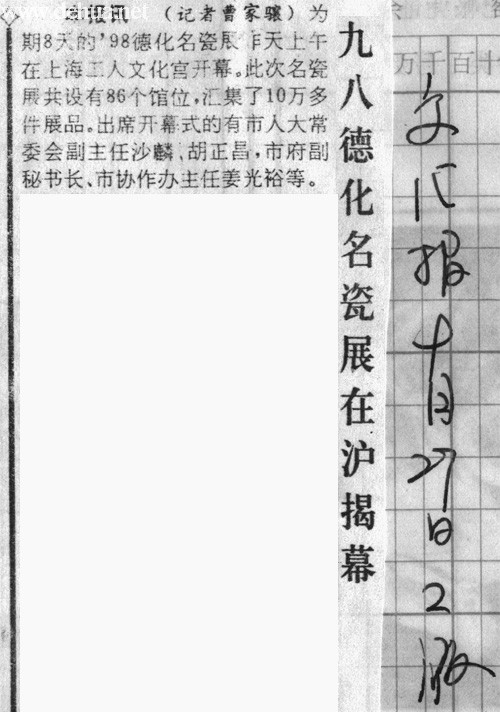 www.dehua.net
（记者曹家骧）为
期8天的'98德化名瓷展昨天上午
在上海工人文化宫开幕。此次名瓷
展共设有86个馆位，汇集了10万多
件展品。出席开幕式的有市人大常
委会副主任沙麟、胡正昌，市府副
秘书长、市协作办主任姜光裕等。
九八德化名瓷展在沪揭幕
万千百十
文汇报十月27日2版